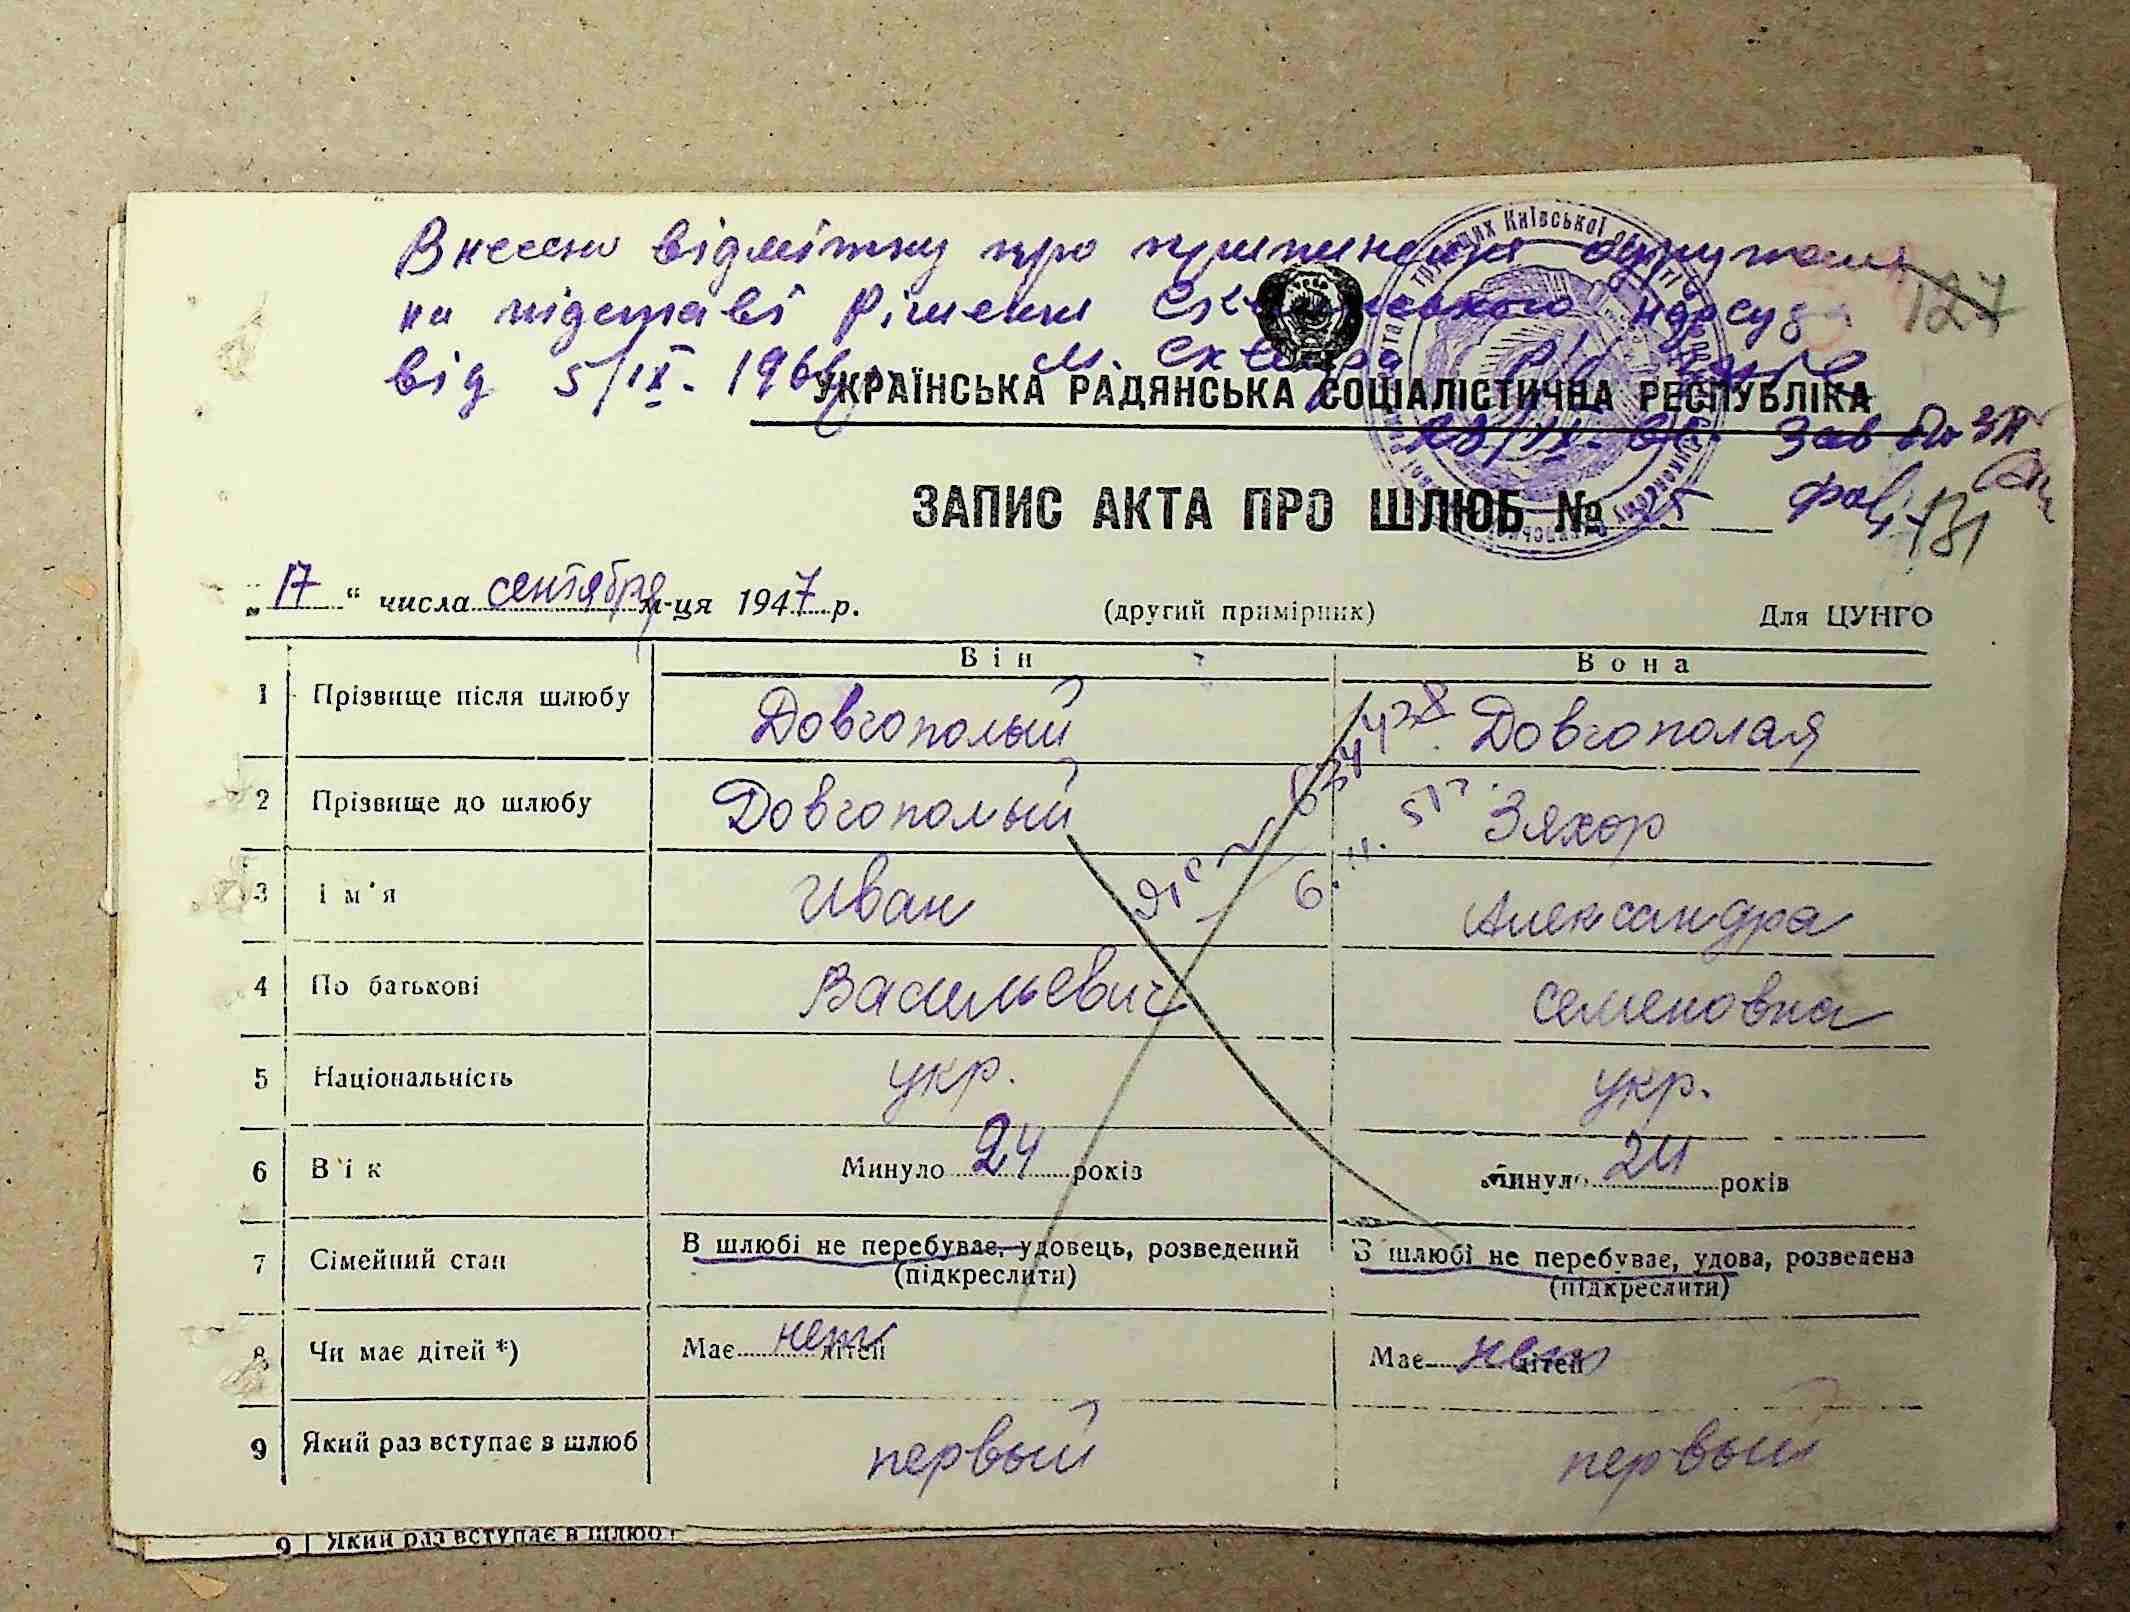 Внесено відмітку про припинення
на підставі рішення нарсуда
від 5/IX. 1966 м. Сквира
127
УКРАЇНСЬКА РАДЯНСЬКА СОЦІАЛІСТИЧНА РЕСПУБЛІКА
Зав
ЗАПИС АКТА ПРО ШЛЮБ № 25
131
„17“ числа сентября м-ця 1947 р. (другий примірник) Для ЦУНГО
Він Вона
1 Прізвище після шлюбу Довгополый Довгополая
2 Прізвище до шлюбу Довгополый Зяхор
3 Ім'я Иван Александра
4 По батькові Васильевич Семеновна
5 Національність укр. укр.
6 Вік Минуло 24 років Минуло 24 років
7 Сімейний стан В шлюбі не перебуває, удовець, розведений (підкреслити) В шлюбі не перебуває, удова, розведена (підкреслити)
8 Чи має дітей *) Має нет дітей Має нет дітей
9 Який раз вступає в шлюб первый первый
9 Який раз вступає в шлюб